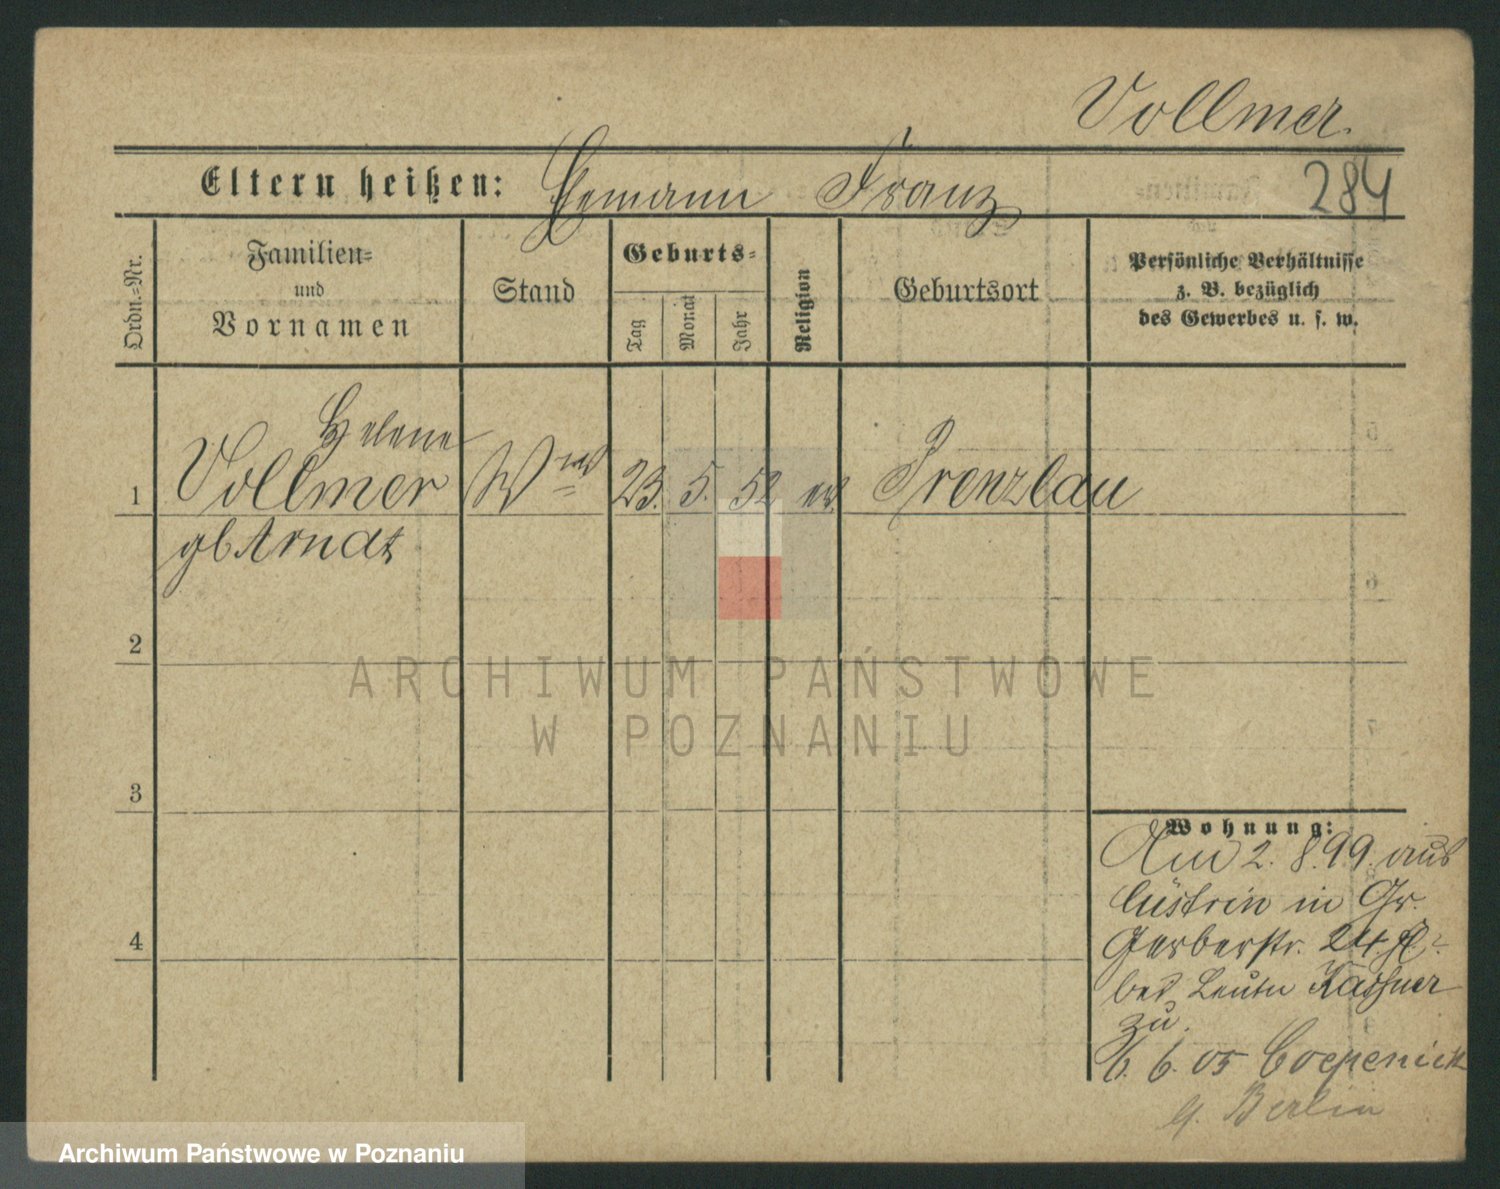 Vollmer.
Eltern heißen: Hemann Franz
284
Ordn.-Nr.
Familien-
und
Vornamen
Stand
Geburts-
Tag
Monat
Jahr
Religion
Geburtsort
Persönliche Verhältnisse
z. B. bezüglich
des Gewerbes u. s. w.
Helene
1 Vollmer Wwe 23. 5. 52 ev. Prenzlau
gb Arndt
2
3
4
Wohnung:
Am 2. 8. 99. aus
Cüstrin in Gr.
Gerberstr. 24
bei Leutn Kaschner
zu.
6. 05 Coepenick
Berlin
ARCHIWUM PAŃSTWOWE
W POZNANIU
Archiwum Państwowe w Poznaniu